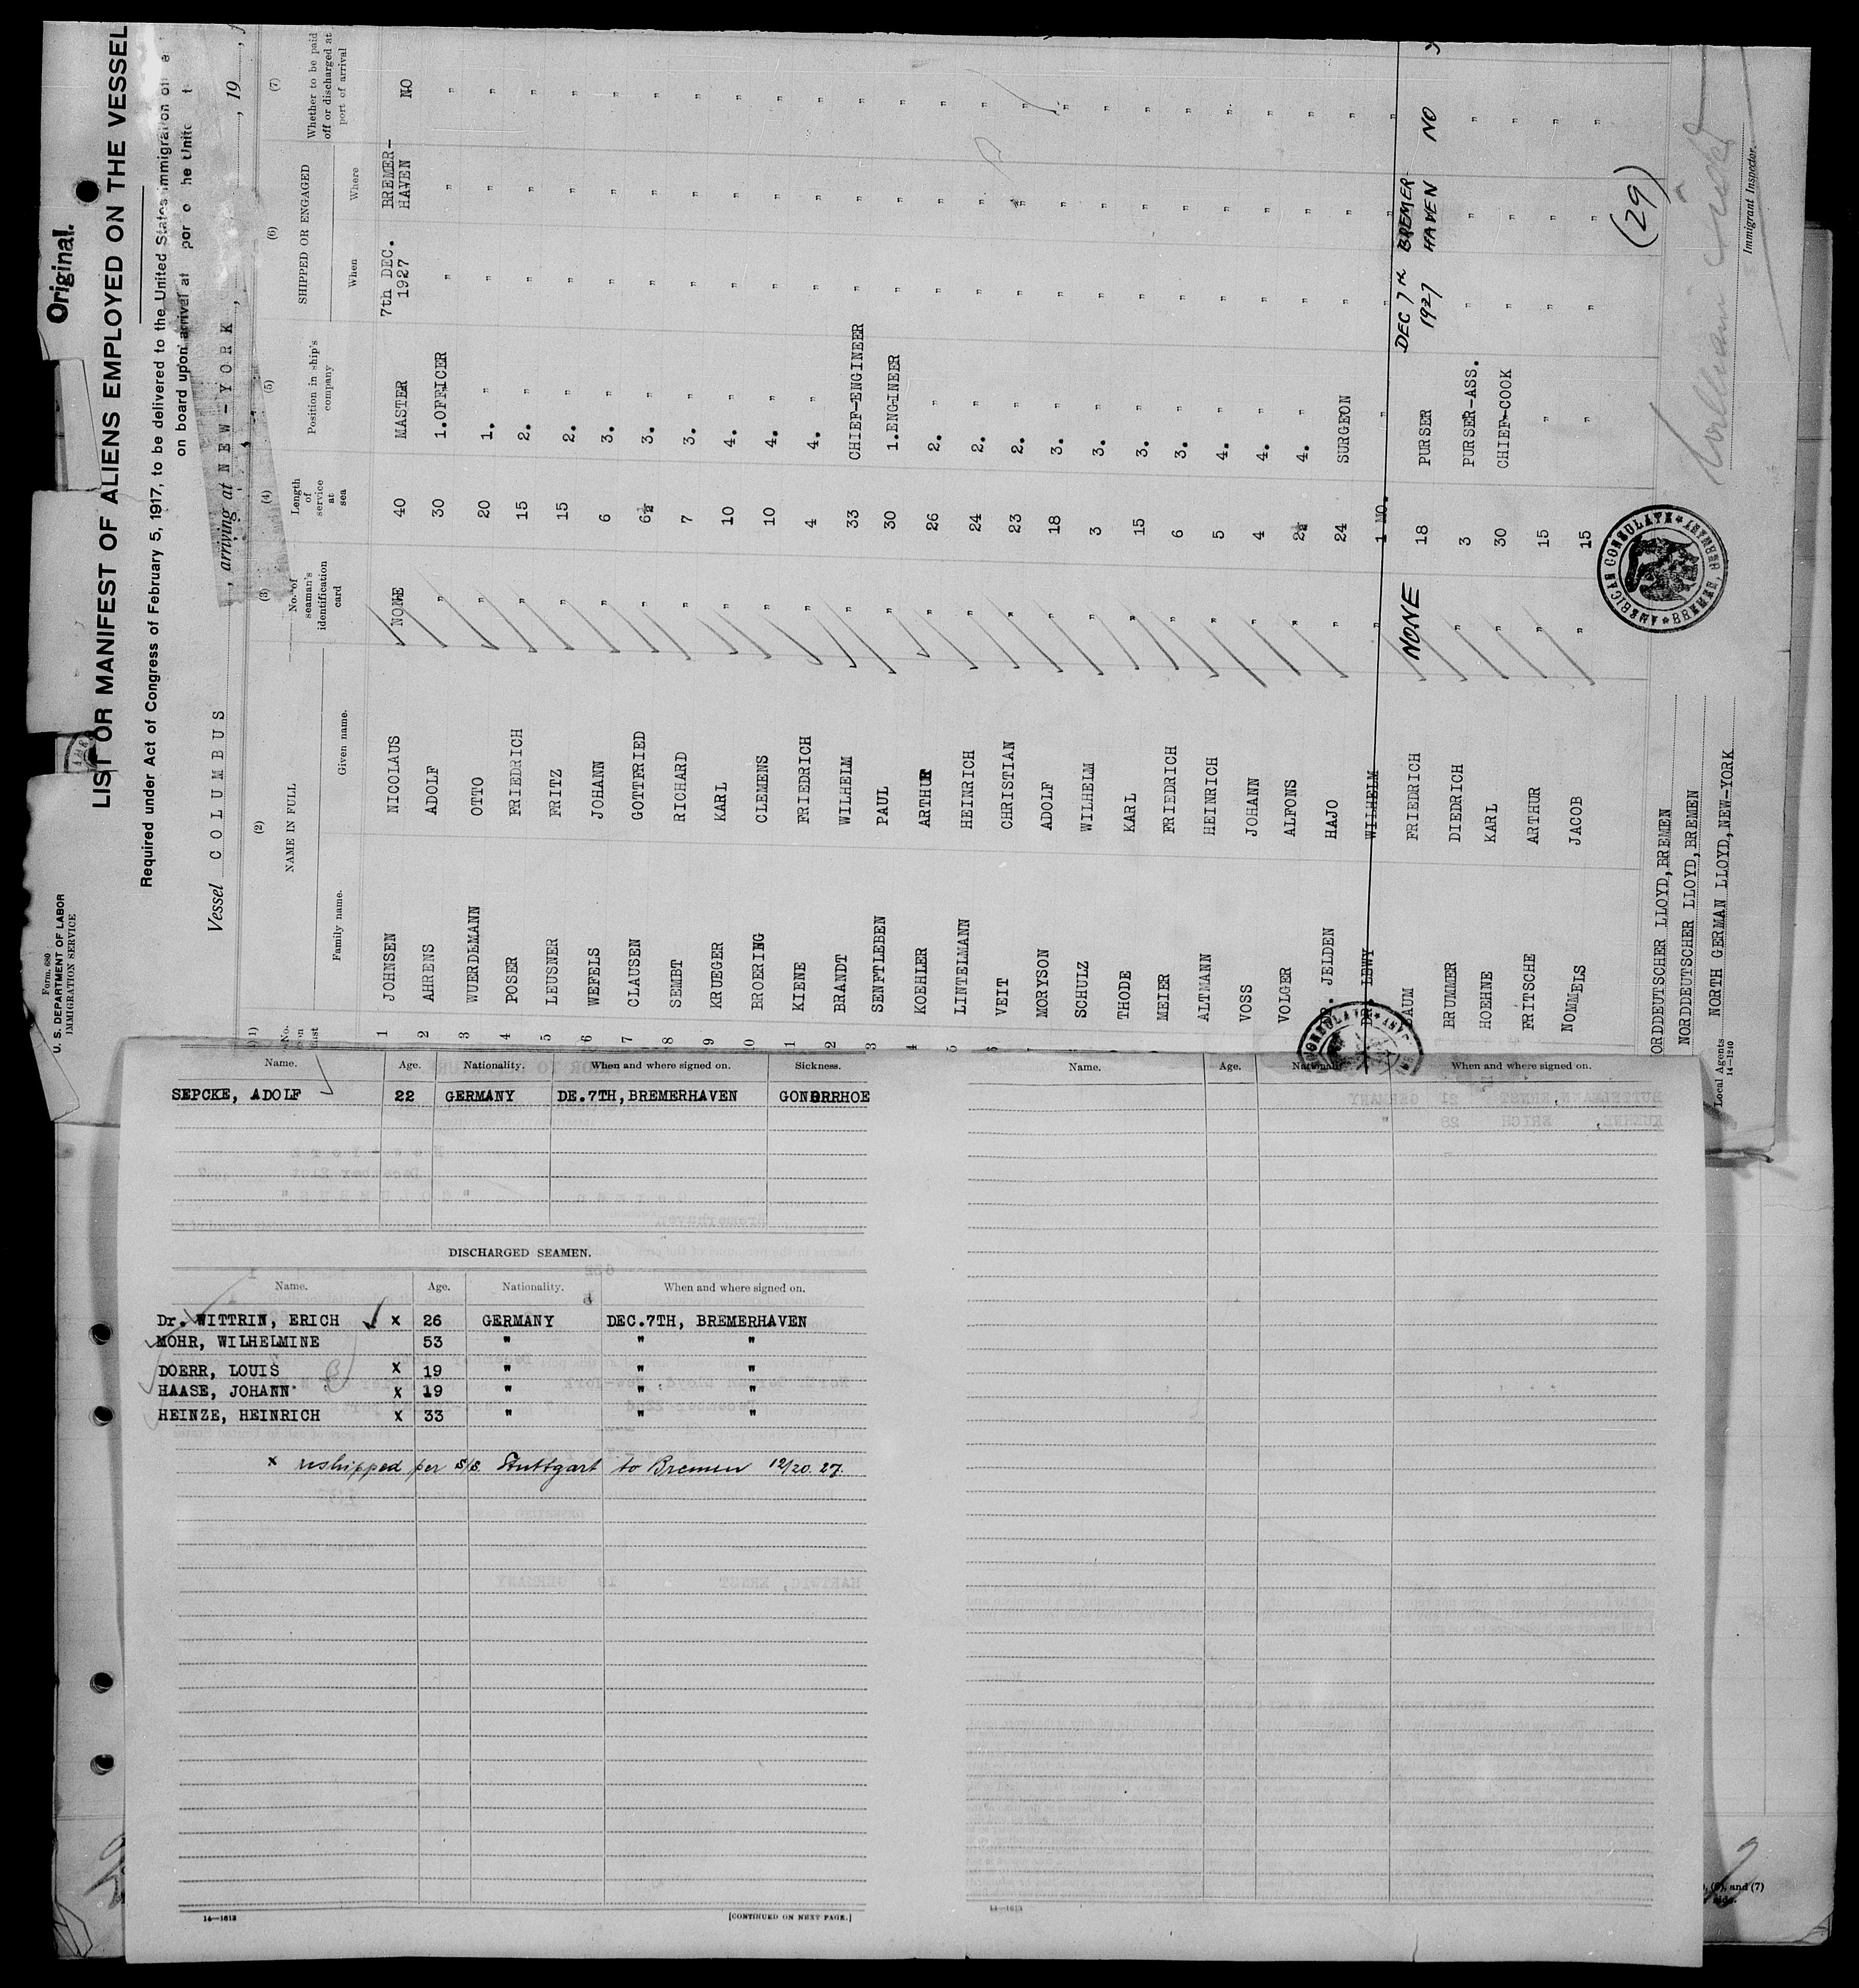 Original.
Form 680
U. S. DEPARTMENT OF LABOR
IMMIGRATION SERVICE
LIST OR MANIFEST OF ALIENS EMPLOYED ON THE VESSEL
Required under Act of Congress of February 5, 1917, to be delivered to the United States immigration
on board upon arrival at
Vessel COLUMBUS , arriving at NEW-YORK , , 19
(1) (2) (3) (4) (5) (6) (7)
NAME IN FULL No. of seaman's identification card Length of service at sea Position in ship's company SHIPPED OR ENGAGED Whether to be paid off or discharged at port of arrival
Family name. Given name. When Where
1 JOHNSEN NICOLAUS NONE 40 MASTER 7th DEC. 1927 BREMER-HAVEN NO
2 AHRENS ADOLF " 30 1.OFFICER " " "
3 WUERDEMANN OTTO " 20 1. " " " "
4 POSER FRIEDRICH " 15 2. " " " "
5 LEUSNER FRITZ " 15 2. " " " "
6 WEFELS JOHANN " 6 3. " " " "
7 CLAUSEN GOTTFRIED " 6½ 3. " " " "
8 SEMBT RICHARD " 7 3. " " " "
9 KRUEGER KARL " 10 4. " " " "
0 BROERING CLEMENS " 10 4. " " " "
1 KIENE FRIEDRICH " 4 4. " " " "
2 BRANDT WILHELM " 33 CHIEF-ENGINEER " " "
3 SENFTLEBEN PAUL " 30 1.ENGINEER " " "
4 KOEHLER ARTHUR " 26 2. " " " "
5 LINTELMANN HEINRICH " 24 2. " " " "
6 VEIT CHRISTIAN " 23 2. " " " "
MORYSON ADOLF " 18 3. " " " "
SCHULZ WILHELM " 3 3. " " " "
THODE KARL " 15 3. " " " "
MEIER FRIEDRICH " 6 3. " " " "
ALTMANN HEINRICH " 5 4. " " " "
VOSS JOHANN " 4 4. " " " "
VOLGER ALFONS " 2½ 4. " " " "
JELDEN HAJO " 24 SURGEON " " "
DR. LEWY WILHELM " 1 MO. " " " "
BAUM FRIEDRICH NONE 18 PURSER DEC 7th 1927 BREMER HAVEN NO
BRUMMER DIEDRICH " 3 PURSER-ASS. " " "
HOEHNE KARL " 30 CHIEF-COOK " " "
FRITSCHE ARTHUR " 15 " " " "
NOMMELS JACOB " 15 " " " "
(29)
AMERICAN CONSULATE BREMEN, GERMANY
ORDDEUTSCHER LLOYD, BREMEN
NORDDEUTSCHER LLOYD, BREMEN
Local Agents NORTH GERMAN LLOYD, NEW-YORK
14-1240
Immigrant Inspector.
Name. Age. Nationality. When and where signed on. Sickness.
SEPCKE, ADOLF 22 GERMANY DE.7TH, BREMERHAVEN GONORRHOE
DISCHARGED SEAMEN.
Name. Age. Nationality. When and where signed on.
Dr. WITTRIN, ERICH x 26 GERMANY DEC.7TH, BREMERHAVEN
MOHR, WILHELMINE 53 " " "
DOERR, LOUIS x 19 " " "
HAASE, JOHANN x 19 " " "
HEINZE, HEINRICH x 33 " " "
x reshipped per S/S. Stuttgart to Bremen 12/20. 27.
14—1613
[CONTINUED ON NEXT PAGE.]
Name. Age. Nationality. When and where signed on.
14—1613
(6), and (7)
side.